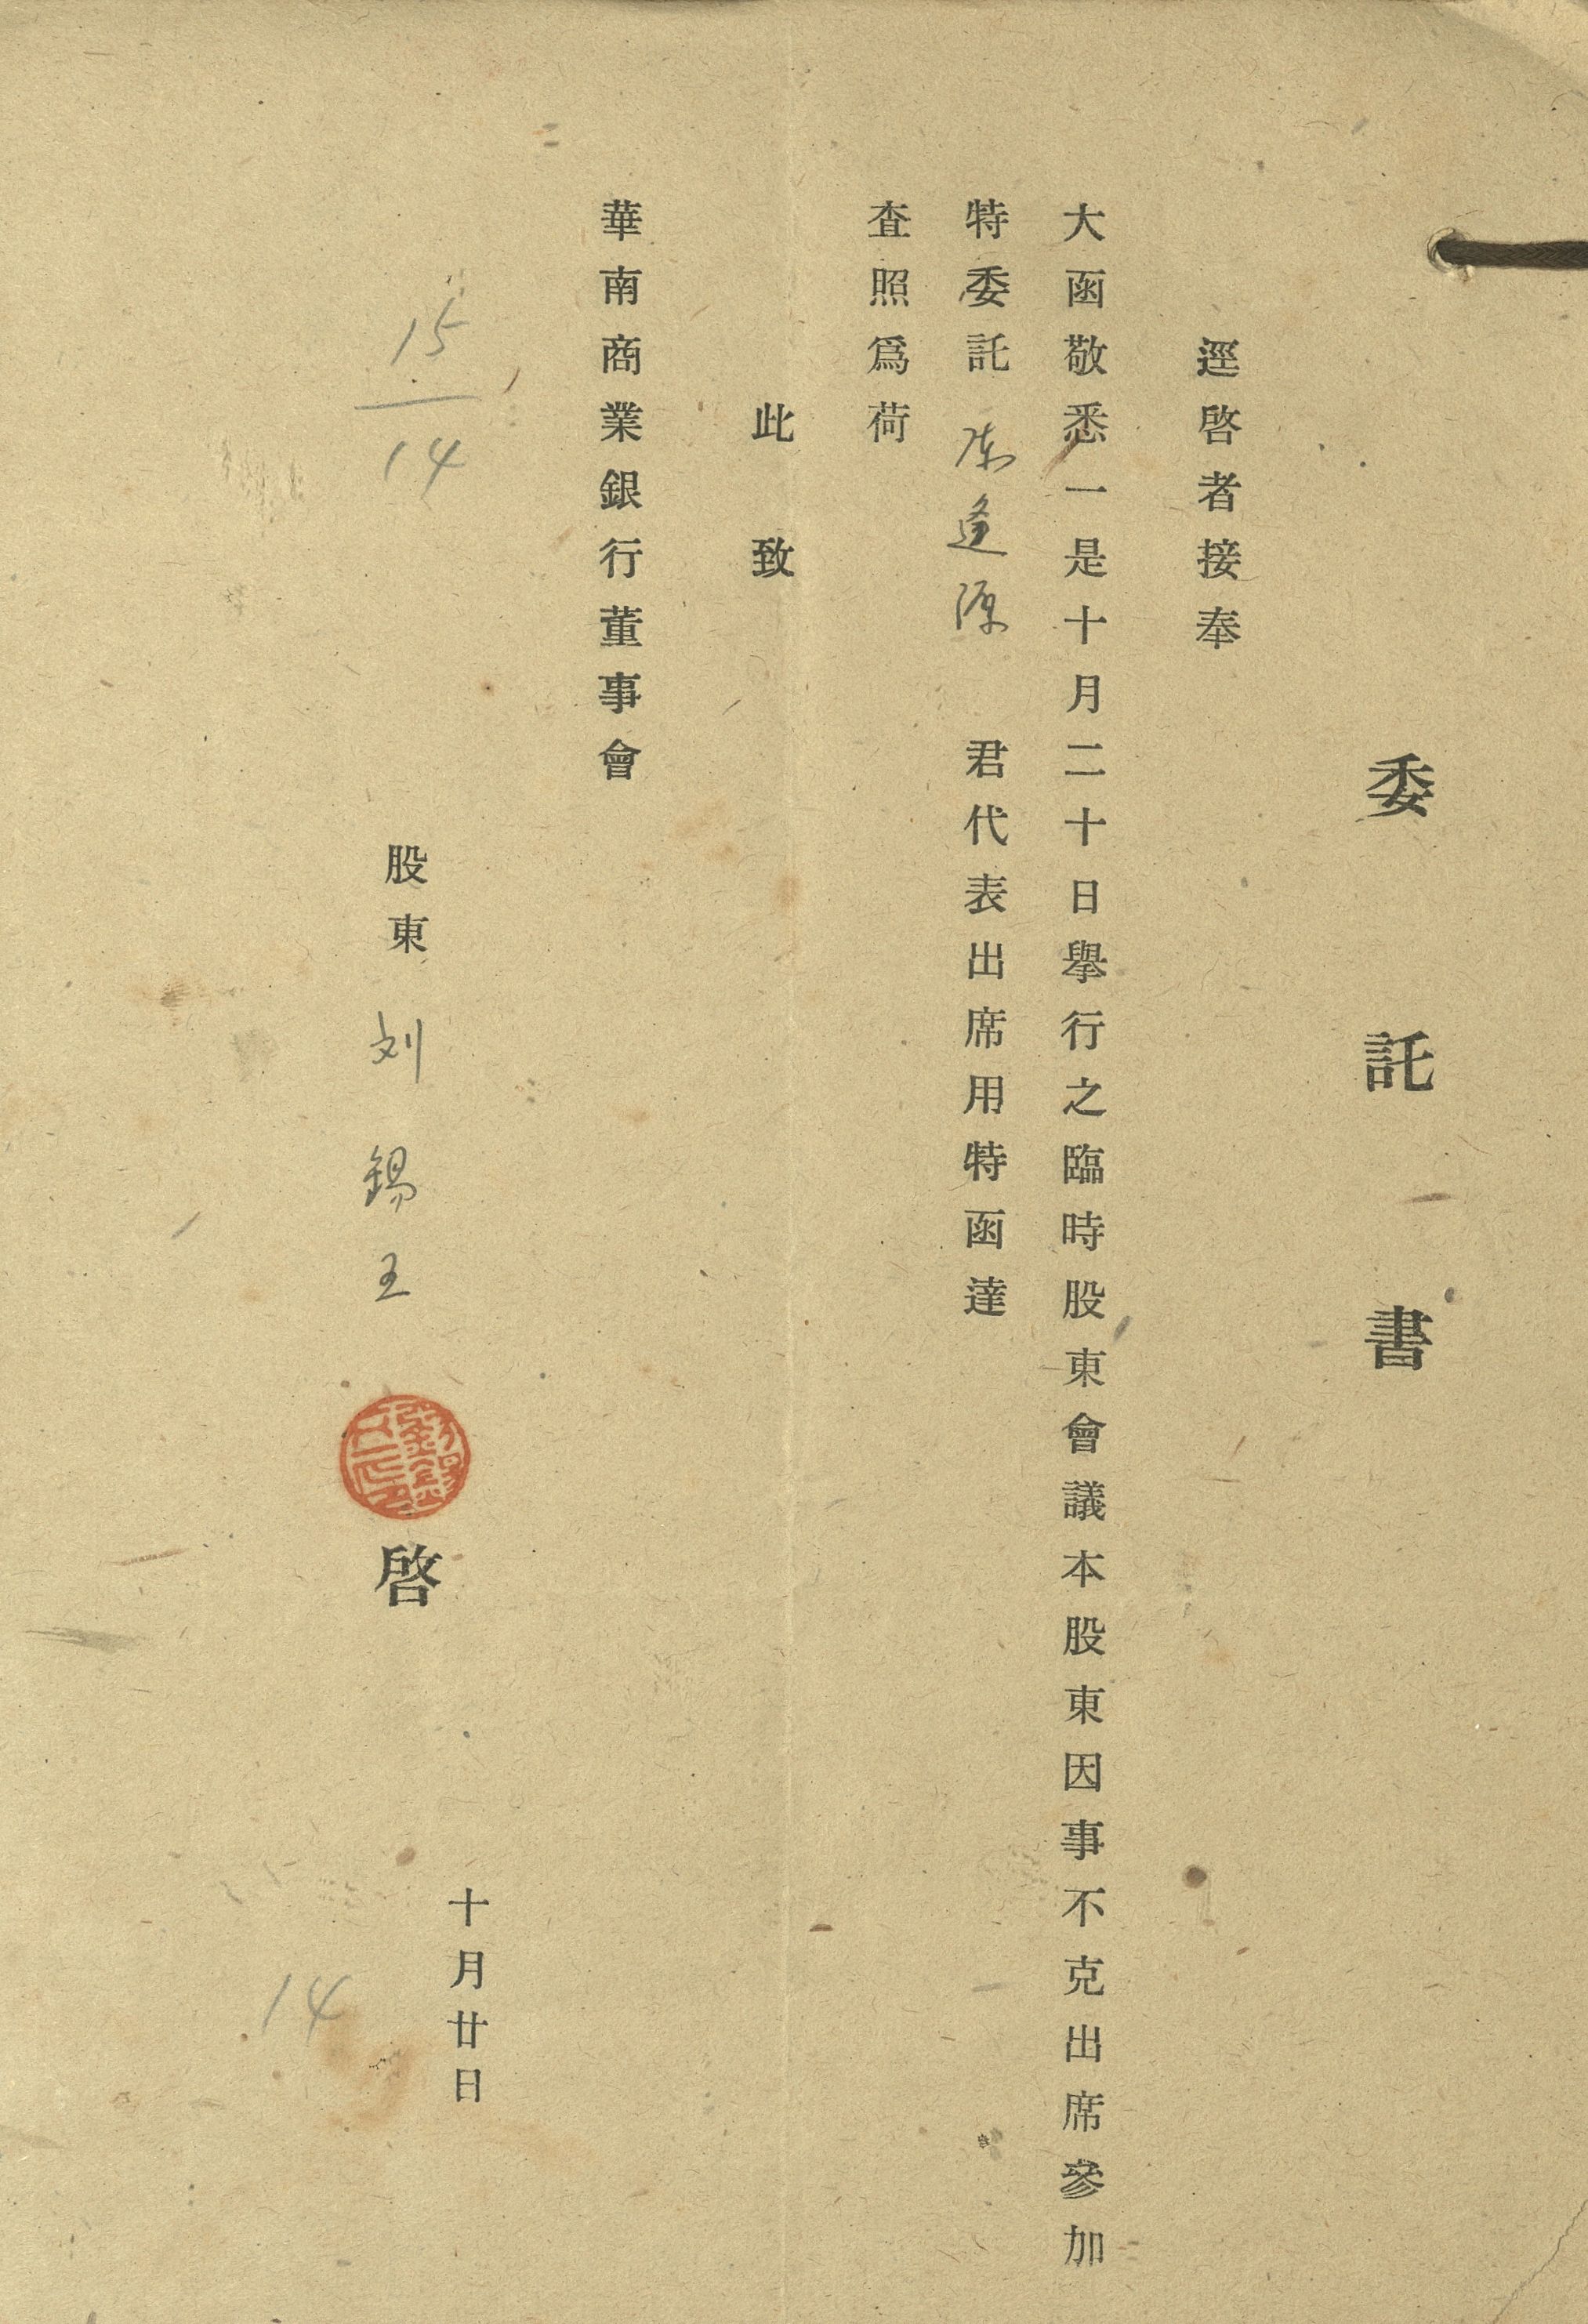 委託書
逕啓者接奉
大函敬悉一是十月二十日擧行之臨時股東會議本股東因事不克出席參加
特委託 陈逢源 君代表出席用特函達
查照爲荷
此致
華南商業銀行董事會
15
14
股東 刘錫五 啓
十月廿日
14